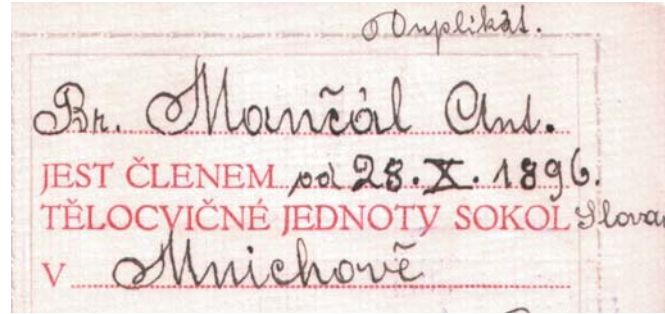 Duplikát.
Br. Mančal Ant.
JEST ČLENEM od 28. X. 1896.
TĚLOCVIČNÉ JEDNOTY SOKOL Slovan
V Mnichově